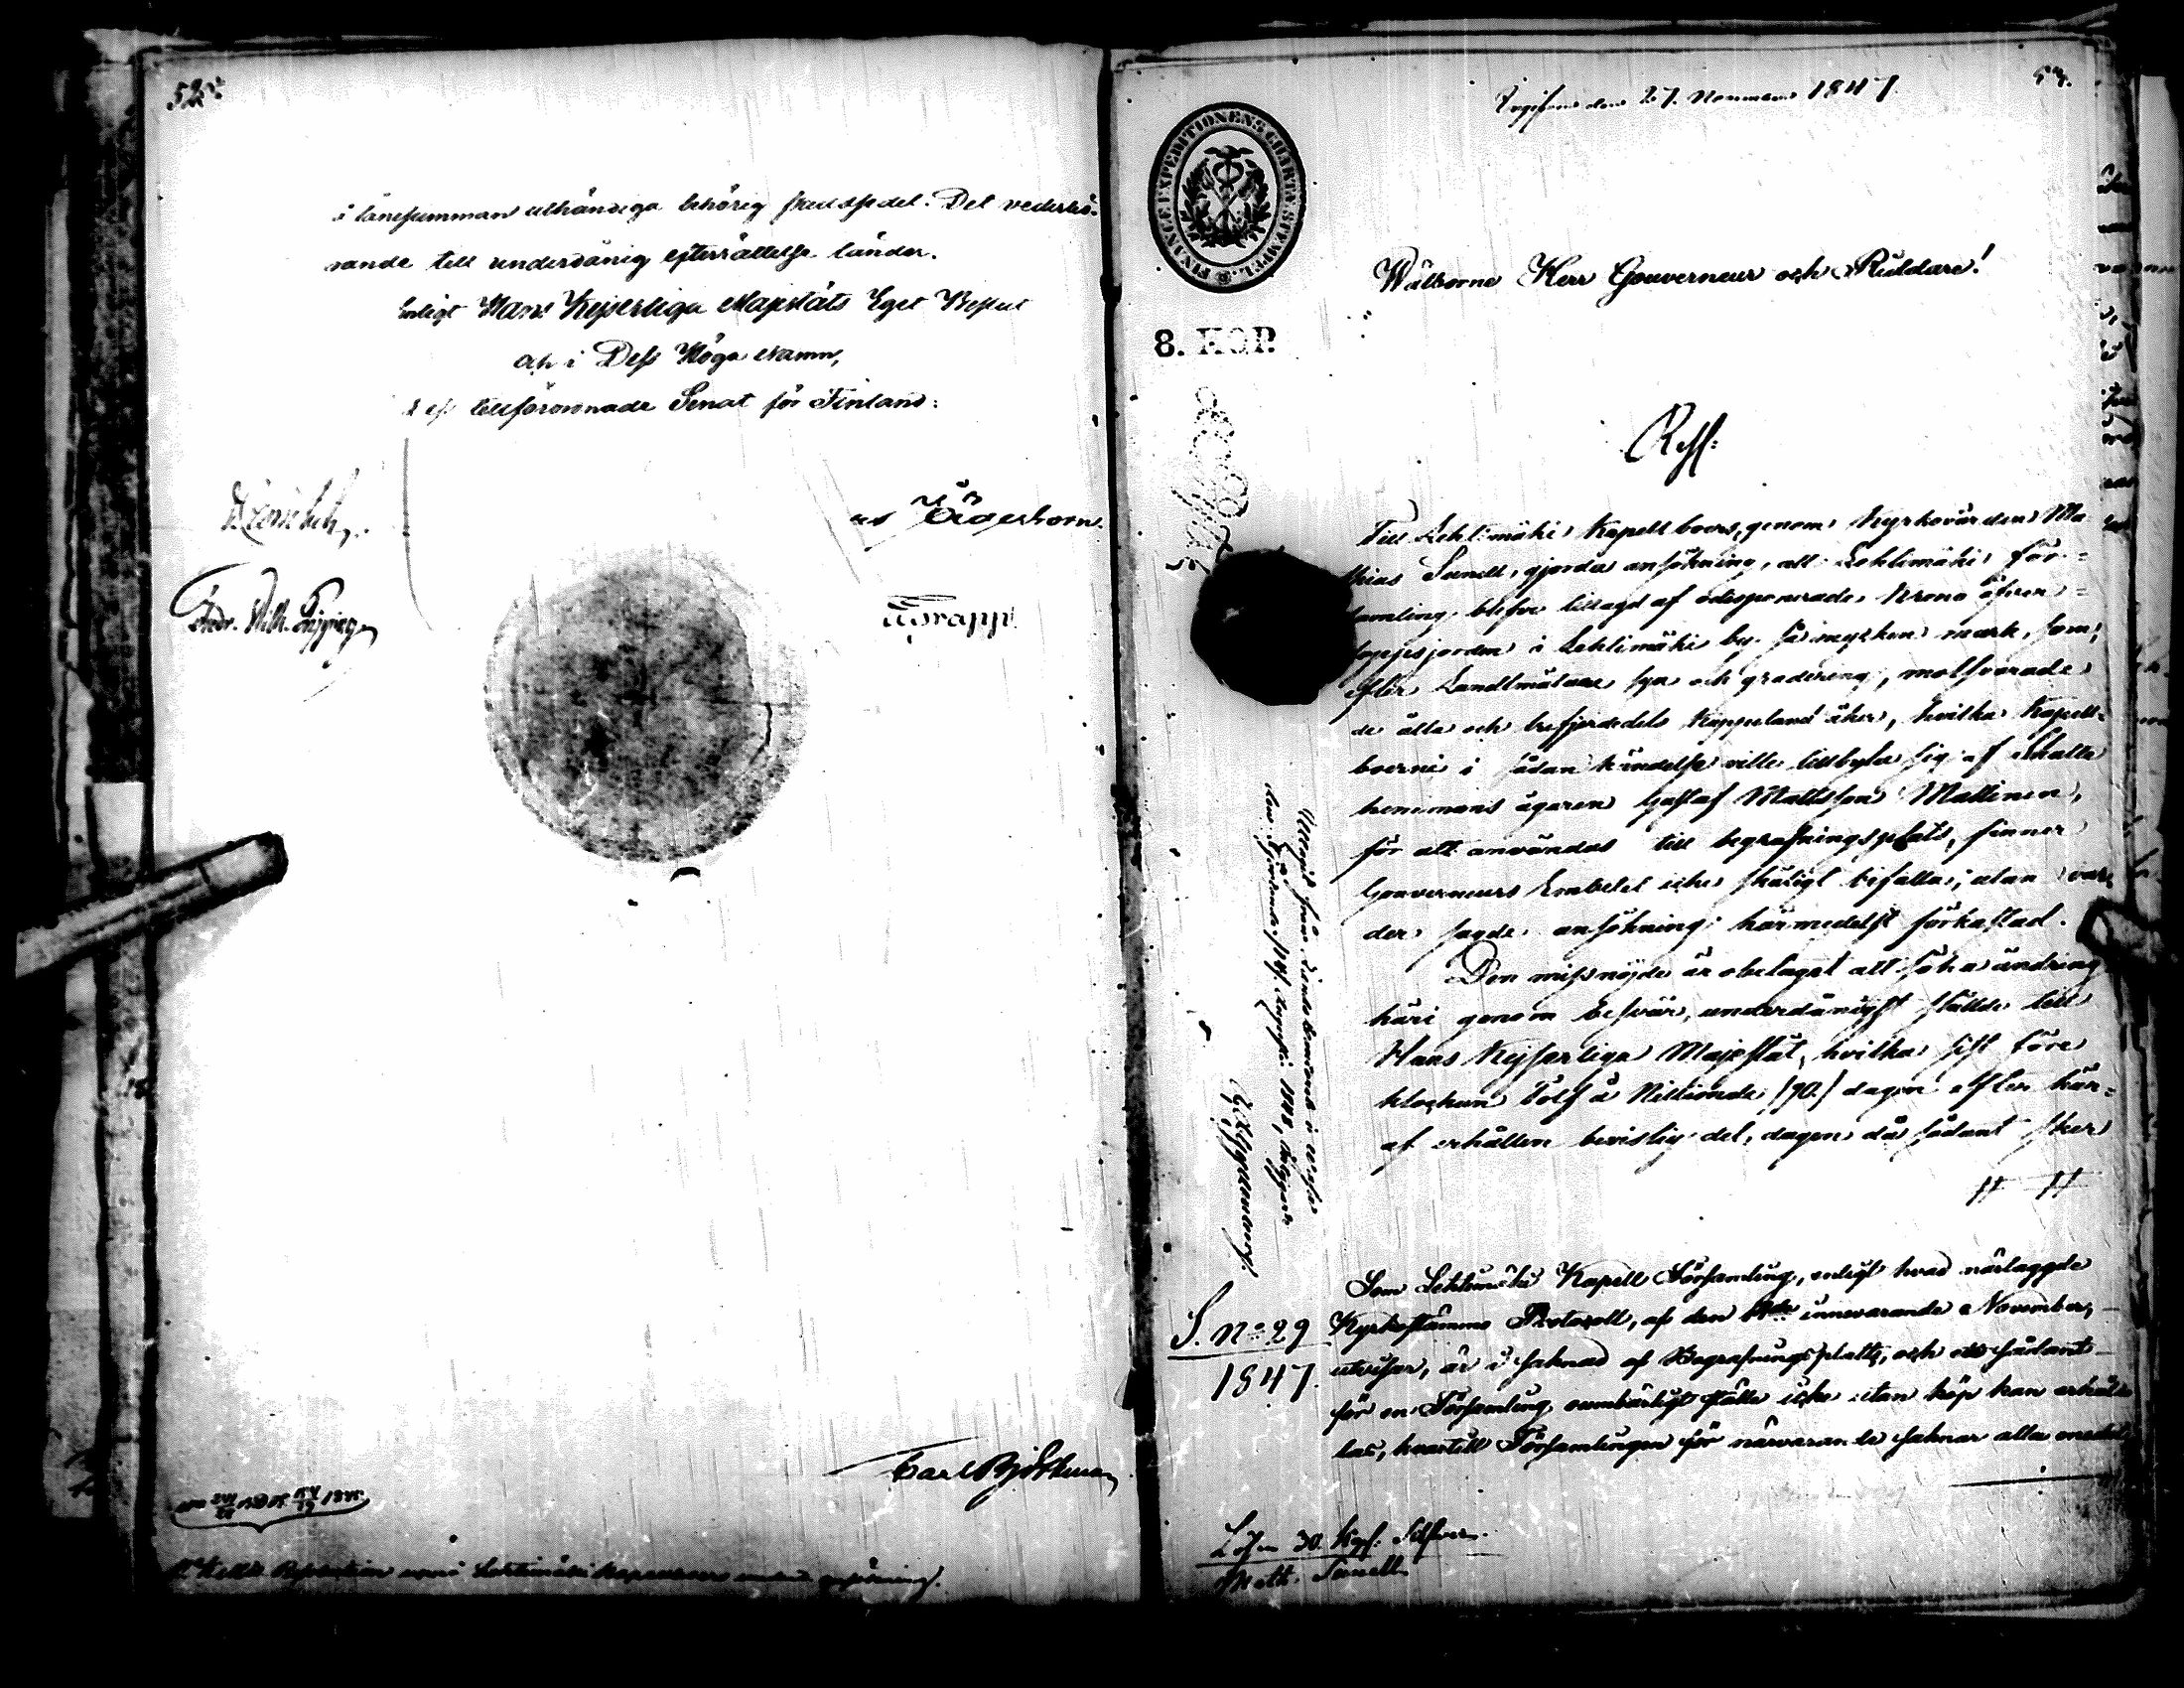 i lånesumman uthändiga behörig skuldsedel. Det vederbö-
rande till underdånig efterrättelse länder.
Enligt Hans Kejserliga Majestäts Eget Beslut
och i Dess Höga Namn,
Dess tillförordnade Senat för Finland:
Jägerhorn
Trapp
Carl Björkman
Ingifven den 27. November 1847
FINANCE EXPEDITIONENS CHARTÆ STEMPEL
8. KOP.
Wälborne Herr Gouverneur och Riddare!
Res:
Till Lehtimäki Kapellboers, genom Kyrkovärden Ma-
thias Sunell, gjorda ansökning, att Lehtimäki för-
samling blefve tillagd af odisponerade Krono öfver-
loppsjorden i Lehtimäki by så mycken mark, som,
efter Landtmätare syn och gradering, motsvarade
de åtta och trefjerdedels kappeland åker, hvilka Kapell-
boerne i sådan händelse ville tillbyta sig af Skatte
hemmans ägaren Gustaf Mattsson Mattinen,
för att användas till begrafningsplats, finner
Gouverneurs Embetet icke skäligt bifalla; utan var-
der sagde ansökning härmedelst förkastad.
Den missnöjde är obetaget att söka ändring
häri genom besvär, underdånigst ställde till
Hans Kejserliga Majestät, hvilka sist före
klockan Tolf å Nittionde /90./ dagen efter här-
af erhållen bevislig del, dagen då sådant sker
Som Lehtimäki Kapell Församling, enligt hvad närlagde
Kyrkostämmo Protocoll, af den innevarande November,
utvisar, är i saknad af Begrafningsplatts, och ett sådant
för en Församling oumbärligt ställe icke utan köp kan erhål-
las, hvartill Församlingen för närvarande saknar alla medel
S. No 29
1847.
Lösen 30. Kop: Silfver.
Math. Sunell